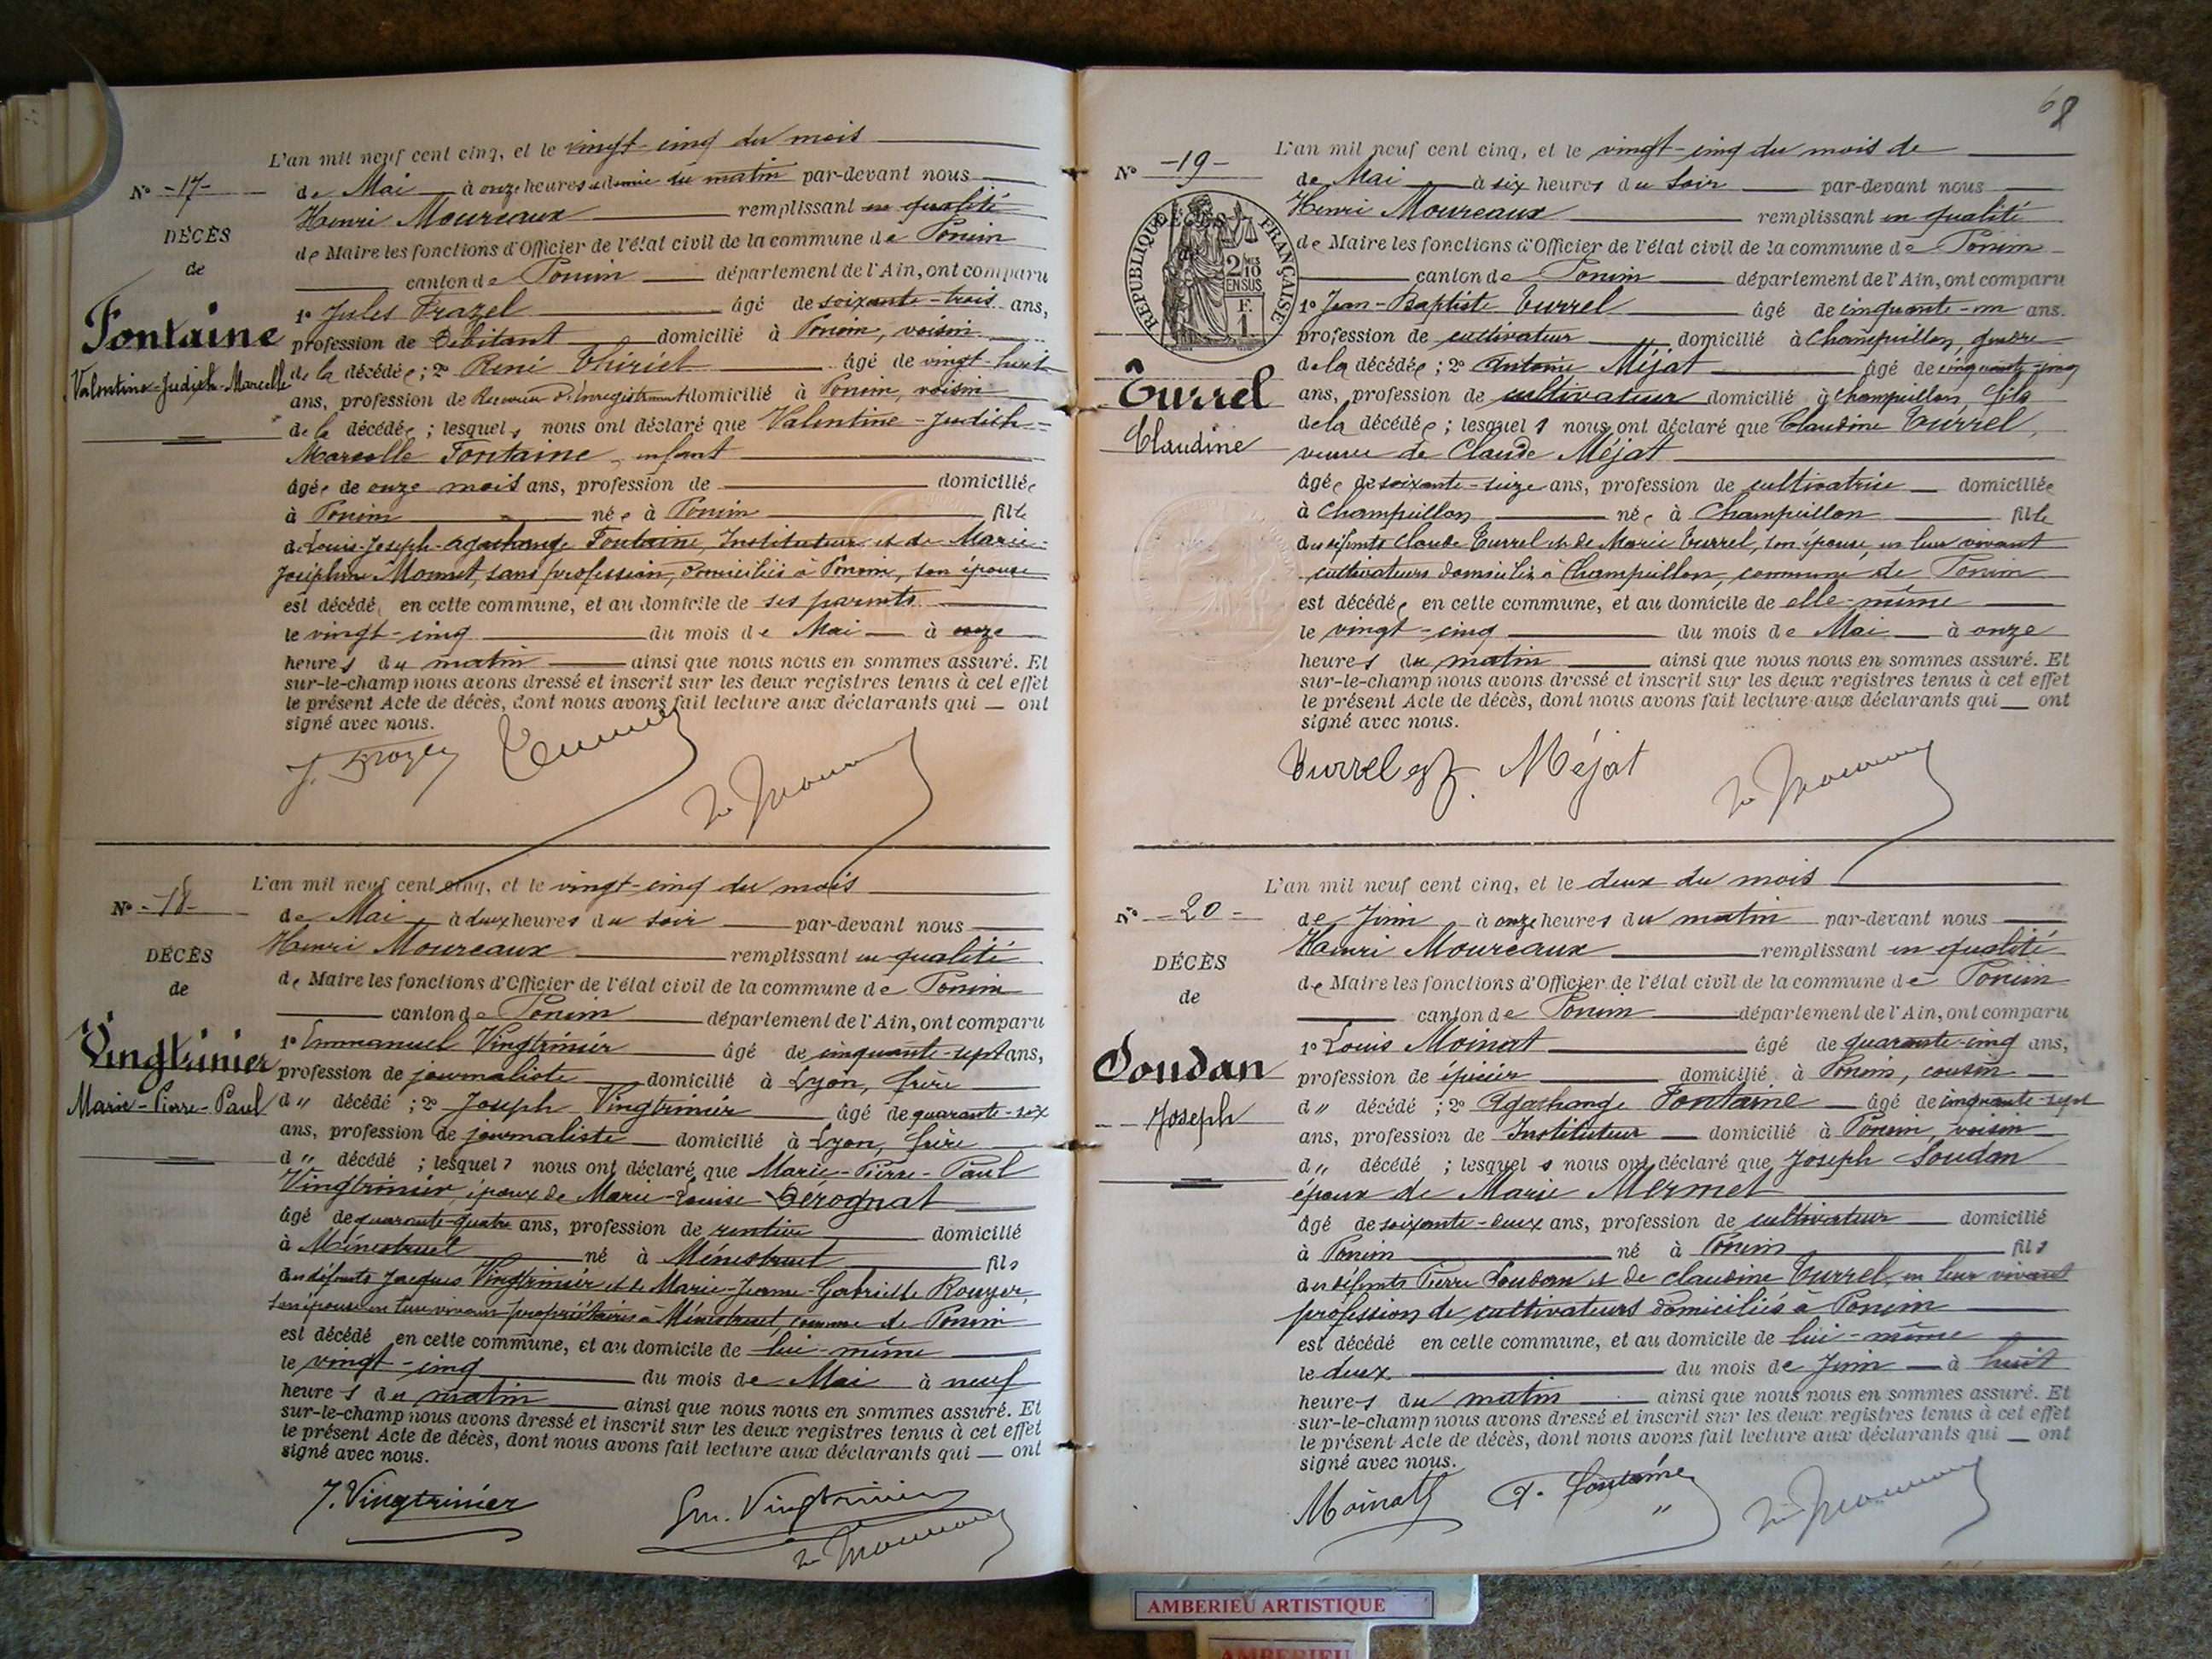 L'an mil neuf cent cinq, et le vingt-cinq du mois
N° -17-
de Mai à onze heures et demie du matin par-devant nous
Henri Moureaux remplissant en qualité
DÉCÈS
de Maire les fonctions d'Officier de l'état civil de la commune de Poncin
de
canton de Poncin département de l'Ain, ont comparu
1° Jules Frazel âgé de soixante-trois ans,
Fontaine
profession de Débitant domicilié à Poncin, voisin
Valentine-Judith-Marcelle
de la décédée; 2° René Thiriet âgé de vingt-huit
ans, profession de Receveur d'Enregistrement domicilié à Poncin, voisin
de la décédée; lesquels nous ont déclaré que Valentine-Judith-
Marcelle Fontaine, enfant
âgée de onze mois ans, profession de domiciliée
à Poncin née à Poncin fille
de Louis-Joseph-Agathange Fontaine, Instituteur et de Marie-
Joséphine Monnet, sans profession, domiciliés à Poncin, son épouse
est décédé, en cette commune, et au domicile de ses parents
le vingt-cinq du mois de Mai à onze
heures du matin ainsi que nous nous en sommes assuré. Et
sur-le-champ nous avons dressé et inscrit sur les deux registres tenus à cet effet
le présent Acte de décès, dont nous avons fait lecture aux déclarants qui ont
signé avec nous.
L'an mil neuf cent cinq, et le vingt-cinq du mois
N° -18-
de Mai à deux heures du soir par-devant nous
Henri Moureaux remplissant en qualité
DÉCÈS
de Maire les fonctions d'Officier de l'état civil de la commune de Poncin
de
canton de Poncin département de l'Ain, ont comparu
1° Emmanuel Vingtrinier âgé de cinquante-sept ans,
Vingtrinier
profession de journaliste domicilié à Lyon, frère
Marie-Pierre-Paul
d" décédé; 2° Joseph Vingtrinier âgé de quarante-six
ans, profession de journaliste domicilié à Lyon, frère
d" décédé; lesquels nous ont déclaré que Marie-Pierre-Paul
Vingtrinier, époux de Marie-Louise Dérognat
âgé de quarante-quatre ans, profession de rentier domicilié
à Ménestruel né à Ménestruel fils
des défunts Jacques Vingtrinier et de Marie-Jeanne-Gabrielle Rouyer,
son épouse en leur vivant propriétaires à Ménestruel, commune de Poncin
est décédé en cette commune, et au domicile de lui-même
le vingt-cinq du mois de Mai à neuf
heures du matin ainsi que nous nous en sommes assuré. Et
sur-le-champ nous avons dressé et inscrit sur les deux registres tenus à cet effet
le présent Acte de décès, dont nous avons fait lecture aux déclarants qui ont
signé avec nous.
J. Vingtrinier
Em. Vingtrinier
68
L'an mil neuf cent cinq, et le vingt-cinq du mois de
N° -19-
de Mai à six heures du soir par-devant nous
Henri Moureaux remplissant en qualité
DÉCÈS
RÉPUBLIQUE FRANÇAISE
2/10 EN SUS
F. 1
de Maire les fonctions d'Officier de l'état civil de la commune de Poncin
canton de Poncin département de l'Ain, ont comparu
1° Jean-Baptiste Turrel âgé de cinquante-un ans.
profession de cultivateur domicilié à Champeillon, gendre
Turrel
Claudine
de la décédée; 2° Antoine Méjat âgé de cinquante-cinq
ans, profession de cultivateur domicilié à Champeillon, fils
de la décédée; lesquels nous ont déclaré que Claudine Turrel,
veuve de Claude Méjat
âgée de soixante-seize ans, profession de cultivatrice domiciliée
à Champeillon née à Champeillon fille
des défunts Claude Turrel et de Marie Turrel, son épouse, en leur vivant
cultivateurs domiciliés à Champeillon, commune de Poncin
est décédée en cette commune, et au domicile de elle-même
le vingt-cinq du mois de Mai à onze
heures du matin ainsi que nous nous en sommes assuré. Et
sur-le-champ nous avons dressé et inscrit sur les deux registres tenus à cet effet
le présent Acte de décès, dont nous avons fait lecture aux déclarants qui ont
signé avec nous.
Turrel Méjat
L'an mil neuf cent cinq, et le deux du mois
N° -20-
de Juin à onze heures du matin par-devant nous
Henri Moureaux remplissant en qualité
DÉCÈS
de Maire les fonctions d'Officier de l'état civil de la commune de Poncin
de
canton de Poncin département de l'Ain, ont comparu
1° Louis Moinat âgé de quarante-cinq ans,
Soudan
profession de épicier domicilié à Poncin, cousin
Joseph
d" décédé; 2° Agathange Fontaine âgé de cinquante-sept
ans, profession de Instituteur domicilié à Poncin, voisin
d" décédé; lesquels nous ont déclaré que Joseph Soudan
époux de Marie Mermet
âgé de soixante-deux ans, profession de cultivateur domicilié
à Poncin né à Poncin fils
des défunts Pierre Soudan et de Claudine Turrel, en leur vivant
profession de cultivateurs domiciliés à Poncin
est décédé en cette commune, et au domicile de lui-même
le deux du mois de Juin à huit
heures du matin ainsi que nous nous en sommes assuré. Et
sur-le-champ nous avons dressé et inscrit sur les deux registres tenus à cet effet
le présent Acte de décès, dont nous avons fait lecture aux déclarants qui ont
signé avec nous.
Moinat A. Fontaine
AMBERIEU ARTISTIQUE
AMBERIEU